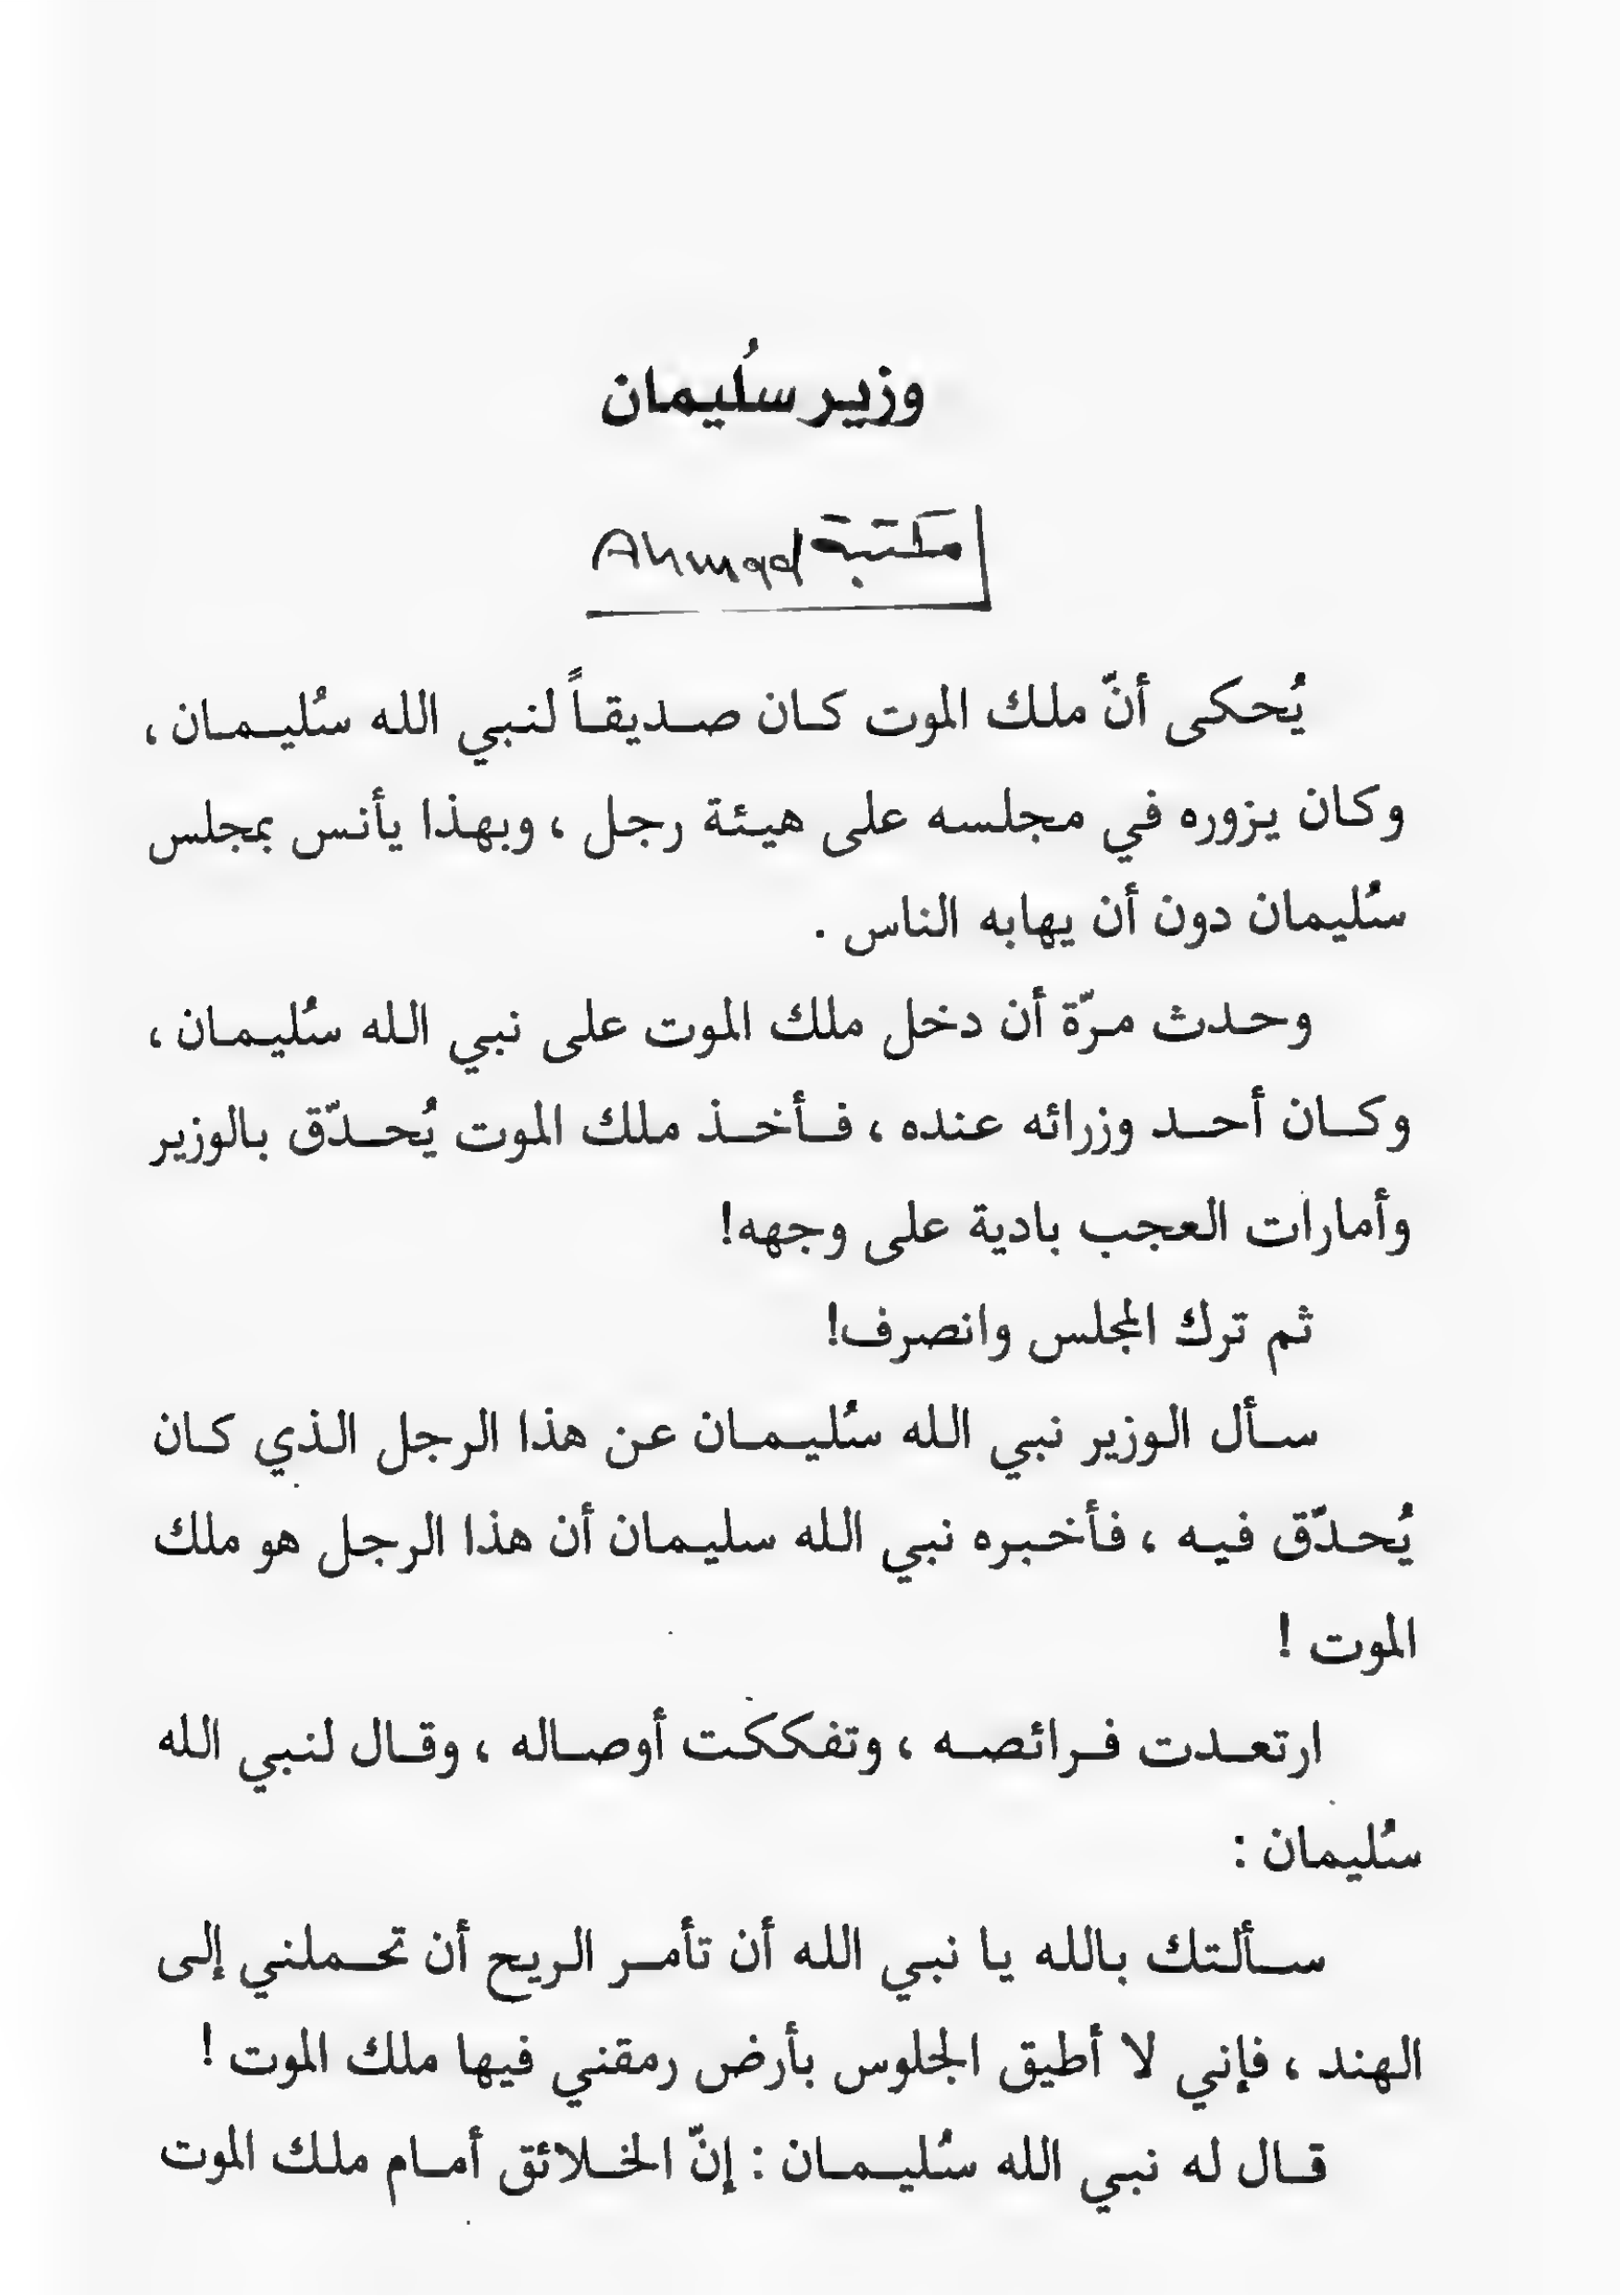 وزير سُليمان
مكتبة Ahmad
يُحكى أنّ ملك الموت كان صديقاً لنبي الله سُليمان ،
وكان يزوره في مجلسه على هيئة رجل ، وبهذا يأنس بمجلس
سُليمان دون أن يهابه الناس .
وحدث مرّة أن دخل ملك الموت على نبي الله سُليمان ،
وكان أحد وزرائه عنده ، فأخذ ملك الموت يُحدّق بالوزير
وأمارات العجب بادية على وجهه!
ثم ترك المجلس وانصرف!
سأل الوزير نبي الله سُليمان عن هذا الرجل الذي كان
يُحدّق فيه ، فأخبره نبي الله سليمان أن هذا الرجل هو ملك
الموت !
ارتعدت فرائصه ، وتفككت أوصاله ، وقال لنبي الله
سُليمان :
سألتك بالله يا نبي الله أن تأمر الريح أن تحملني إلى
الهند ، فإني لا أطيق الجلوس بأرض رمقني فيها ملك الموت !
قال له نبي الله سُليمان : إنّ الخلائق أمام ملك الموت